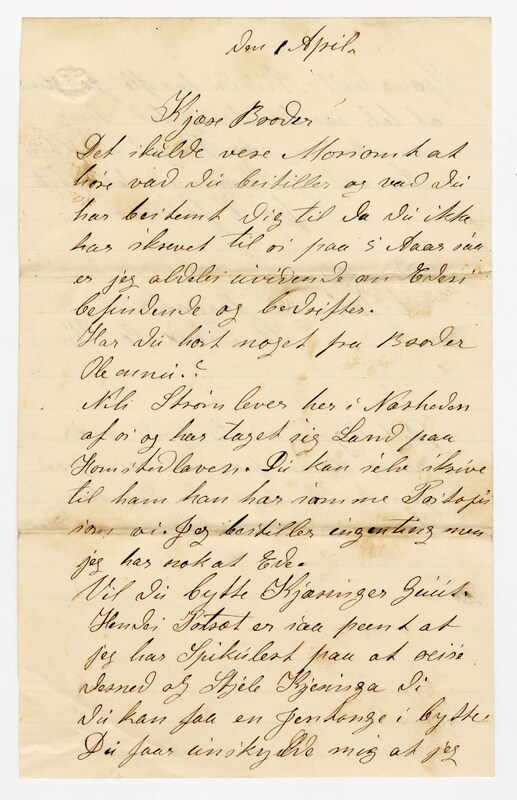 den 1 April
Kjære Broder
Det skulde vere Morsomt at
höre vad du bestiller og vad du
har bestemt dig til da du ikke
har skrevet til os paa 5 Aaar saa
er jeg aldeles uvidende om Eders
befindende og bedrifter.
Har du hört noget fra Broder
Ole ennu.?
Nils Ström lever her i Nærheden
af os og har taget sig Land paa
Homstedlaven. Du kan selv skrive
til ham han har samme Postofis
som vi. Jeg bestiller ingenting men
jeg har nok at Ede.
Vil du bytte Kjæringer Guut.
Hendes Potræt er saa peent at
jeg har Spikulert paa at reise
derned og Stjele Kjeringa Di
du kan faa en Jentonge i bytte.
Du faar unskylde mig at jeg